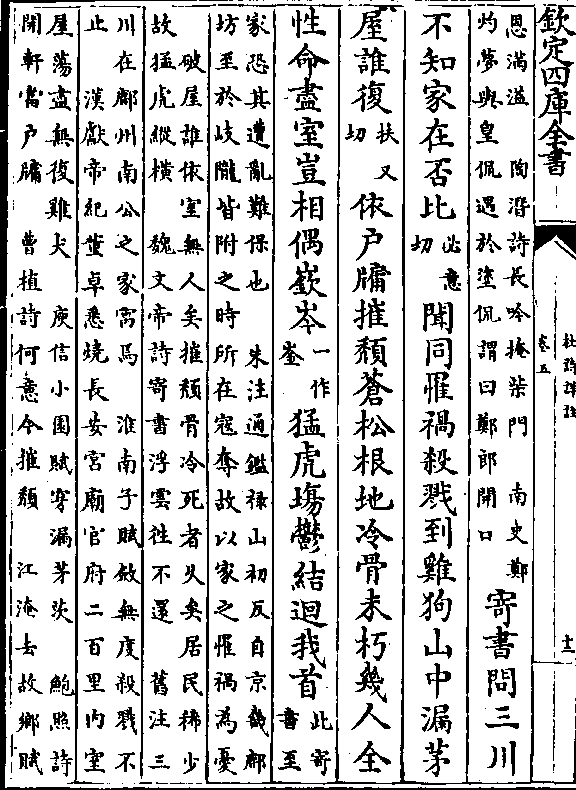 欽定四庫全書
杜詩詳註
卷五
十二
恩滿溢　陶潛詩長吟掩柴門　南史鄭
灼夢與皇侃遇於塗侃謂曰鄭郎開口
寄書問三川
不知家在否比
必意
切
聞同罹禍殺戮到雞狗山中漏茅
屋誰復
扶又
切
依户牖摧頹蒼松根地冷骨未朽幾人全
性命盡室豈相偶嶔岑
一作
崟
猛虎場鬱結迴我首
此寄
書至
家恐其遭亂難保也　朱注通鑑禄山初反自京畿鄜
坊至於岐隴皆附之時所在寇奪故以家之罹禍為憂
破屋誰依室無人矣摧頹骨冷死者乆矣居民稀少
故猛虎縱横　魏文帝詩寄書浮雲徃不還　舊注三
川在鄜州南公之家寓焉　淮南子賦斂無度殺戮不
止　漢獻帝紀董卓悉燒長安宫廟官府二百里内室
屋蕩盡無復雞犬　庾信小園賦穿漏茅茨　鮑照詩
開軒當户牖　曹植詩何意今摧頹　江淹去故鄉賦